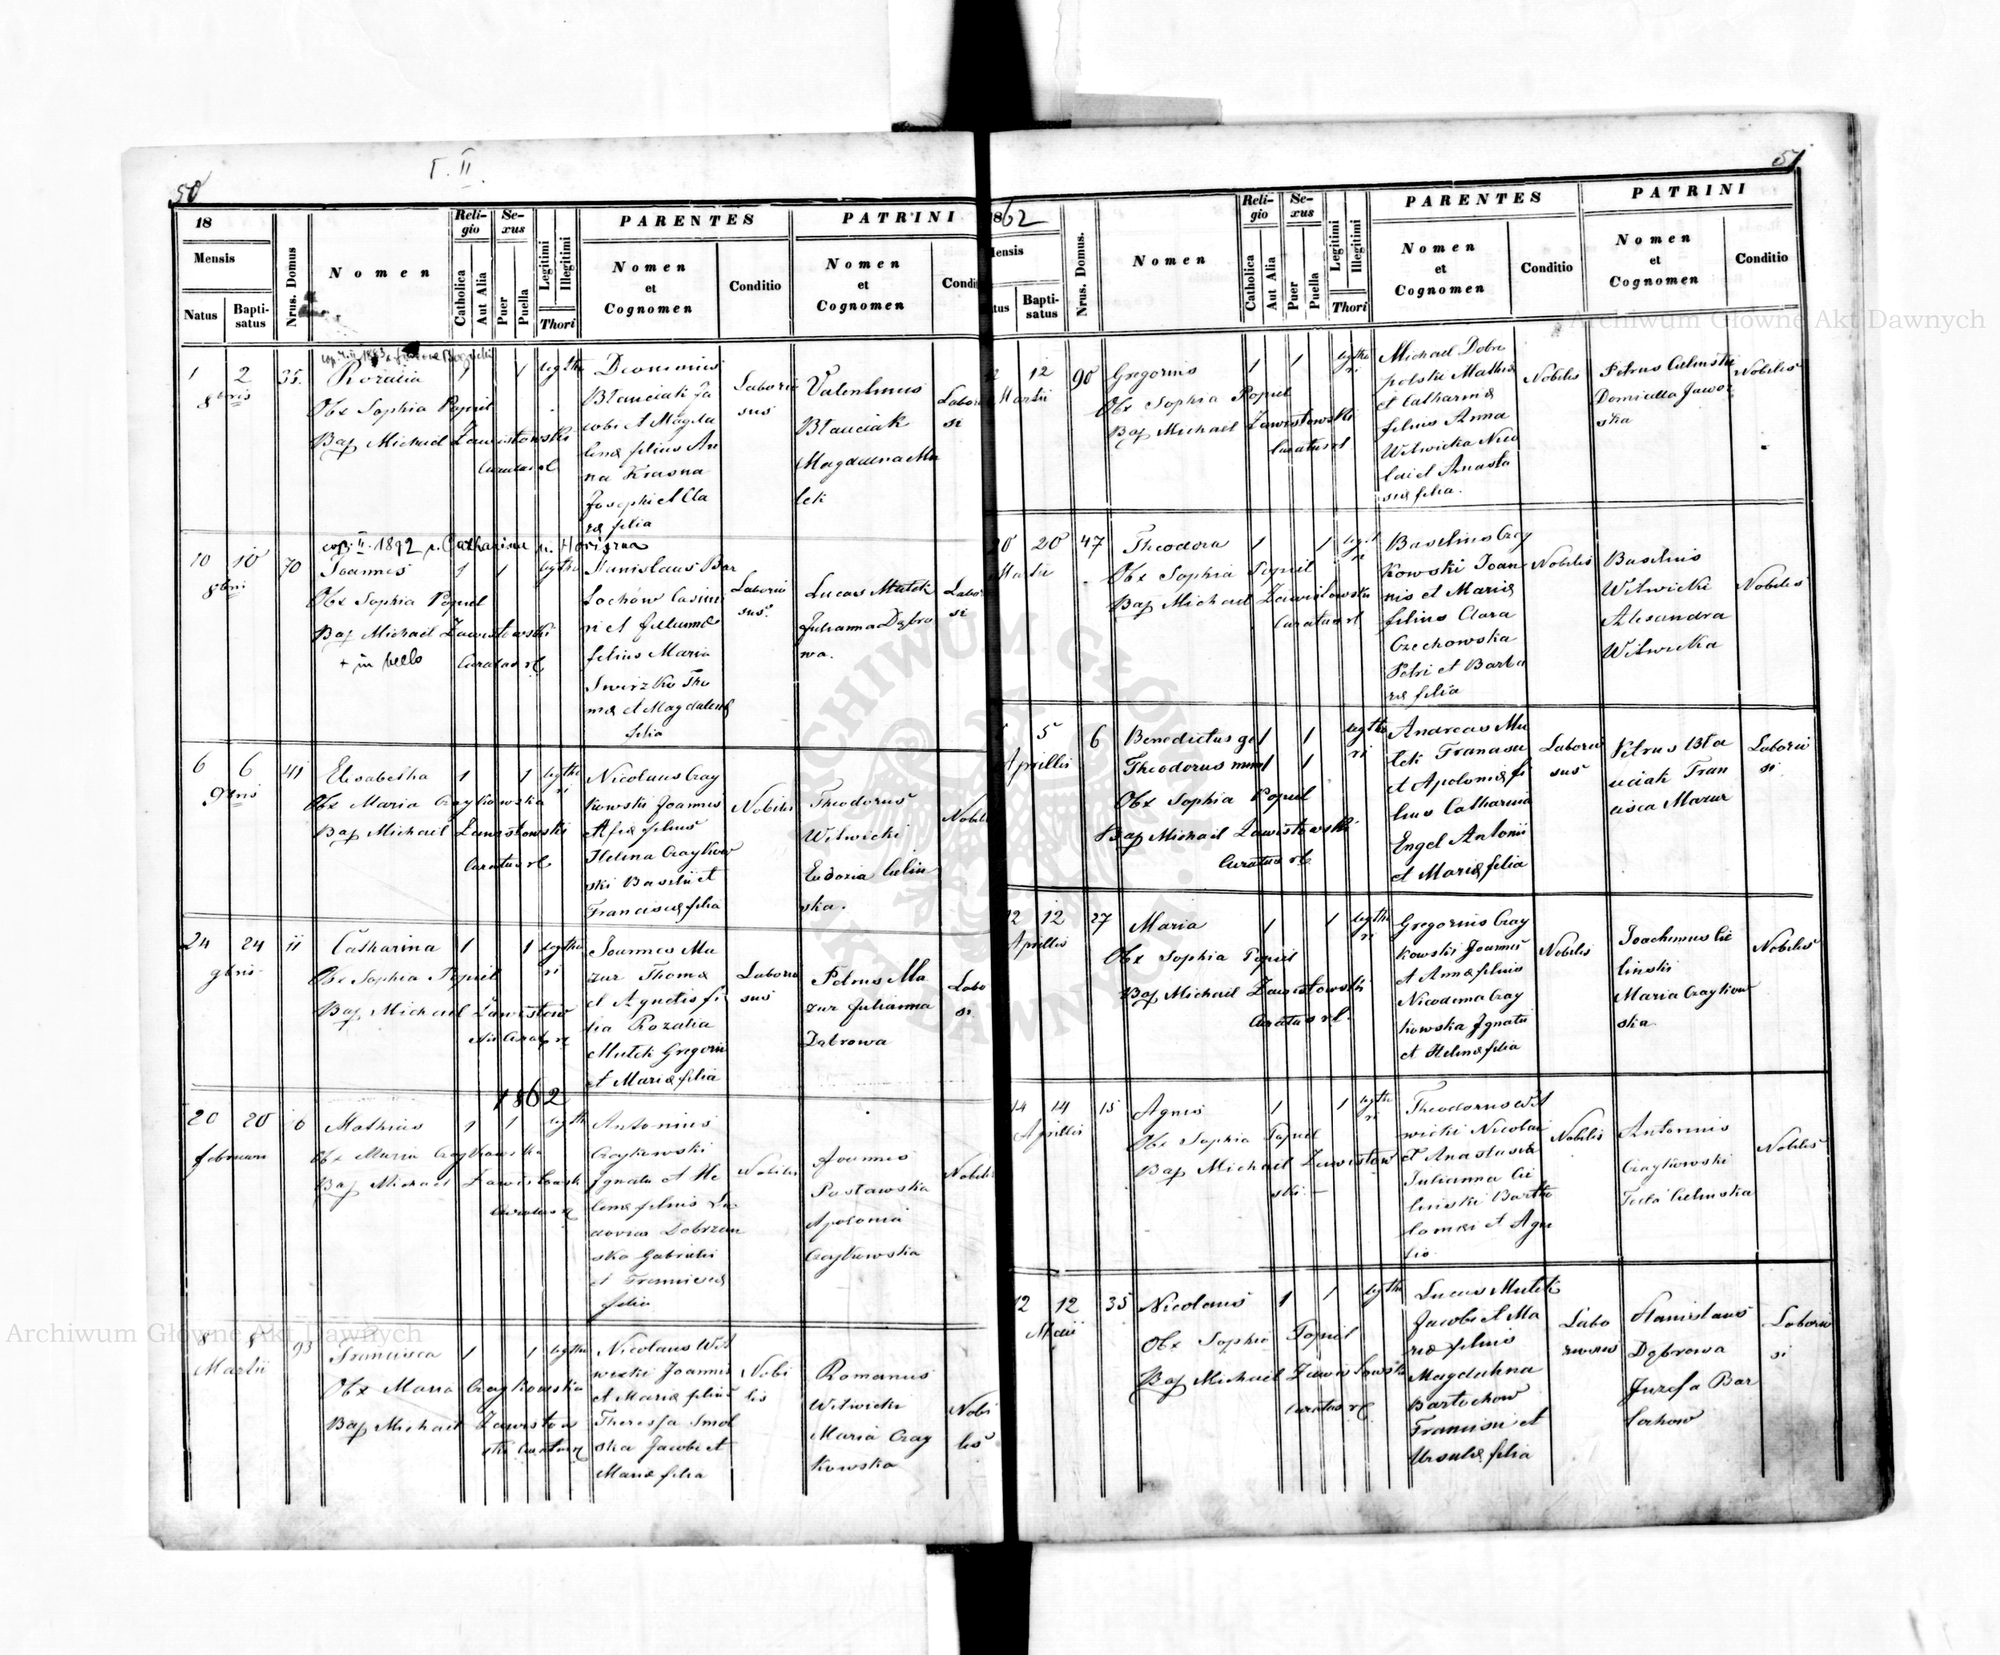 50
T. II.
18
Mensis
Natus
Baptisatus
Nrus Domus
Nomen
Religio
Catholica
Aut Alia
Sexus
Puer
Puella
Legitimi
Illegitimi
Thori
PARENTES
Nomen
et
Cognomen
Conditio
PATRINI
Nomen
et
Cognomen
Condi
1 2 35
8bris
Rozalia 1 1
Obx Sophia Popiel
Bap Michael Zawistowski
Curatus rl
Blauciak Ja
cobi et Magda
lenæ filius An
na Krasna
Josephi et Cla
ræ filia
Laborio
sus
Valentinus
Blauciak
Magdalena Mu
lek
Labori
si
10 10 70
8bris
cop. II. 1892 c. Catharina
Joannes 1 1
Obx Sophia Popiel
Bap Michael Zawistowski
+ in bello Curatus rl
Stanislaus Bar
tochów Casimi
ri et Julianna
filius Maria
Swirzko Tho
mæ et Magdalenæ
filia
Laborio
sus
Lucas Mulek
Julianna Dąbro
wa.
Labor
si
6 6 41
9bris
Elisabetha 1 1 legtho
ri
Obx Maria Czaykowska
Bap Michael Zawistowski
Curatus rl
Nicolaus Czay
kowski Joannis
filius
Helena Czaykow
ski Basilii et
Franciscæ filia
Nobilis
Theodorus
Witwicki
Eudoxia Cielin
ska.
Nobili
24 24 11
9bris
Catharina 1 1 legtho
ri
Obx Sophia Popiel
Bap Michael Zawistow
ski Curat rl
Joannes Ma
zur Thomæ
et Agnetis fi
lia Rozalia
Mulek Gregorii
et Mariæ filia
Laborio
sus
Petrus Ma
zur Julianna
Dąbrowa
Labo
si
1862
20 20 16
Februarii
Mathias 1 1 legtho
Obx Maria Czaykowska
Bap Michael Zawistowsk
Curatus rl
Antonius
Czaykowski
Ignatii et He
lenæ filius Lu
dovica Dobrzan
ska Gabrielis
et Franciscæ
filia
Nobilis
Joannes
Postawska
Apolonia
Czaykowska
Nobilis
8 8 93
Martii
Francisca 1 1 legtho
Obx Maria Czaykowska
Bap Michael Zawistow
ski Curatus rl
Nicolaus Wit
wicki Joannis
et Mariæ filius
Theressa Smol
ska Jacobi et
Mariæ filia
Nobi
lis
Romanus
Witwicki
Maria Czay
kowska
Nobi
lis
51
1862
Mensis
Natus
Baptisatus
Nrus. Domus.
Nomen
Religio
Catholica
Aut Alia
Sexus
Puer
Puella
Legitimi
Illegitimi
Thori
PARENTES
Nomen
et
Cognomen
Conditio
PATRINI
Nomen
et
Cognomen
Conditio
12 90
Martii
Gregorius 1 1 legtho
ri
Obx Sophia Popiel
Bap Michael Zawistowski
Curatus rl
Michael Dobr
Mathiæ
et Catharinæ
filius Anna
Witwicka Nico
lai et Anasta
siæ filia.
Nobilis
Petrus Cielinski
Domicella Jawor
ska
Nobilis
20 20 47
Martii
Theodora 1 1
Obx Sophia Popiel
Bap Michael Zawistowski
Curatus rl
Basilius Czay
kowski Joan
nis et Mariæ
filius Clara
Czechowska
Petri et Barba
ræ filia
Nobilis
Basilius
Witwicki
Alexandra
Witwicka
Nobilis
5 6
Aprillis
Benedictus ge 1 1 legtho
ri
Theodorus mini 1 1
Obx Sophia Popiel
Bap Michael Zawistowski
Curatus rl
Andreas Mu
lek Francisci
et Apoloniæ fi
lius Catharina
Engel Antonii
et Mariæ filia
Laborio
sus
Petrus Bla
uciak Fran
cisca Mazur
Laborio
si
12 12 27
Aprillis
Maria 1 1 legtho
ri
Obx Sophia Popiel
Bap Michael Zawistowski
Curatus rl.
Gregorius Czay
kowski Joannis
et Annæ filius
Nicodema Czay
kowska Ignatii
et Helenæ filia
Nobilis
Joachimus Cie
linski
Maria Czaykow
ska
Nobilis
14 14 15
Aprillis
Agnes 1 1 legtho
ri
Obx Sophia Popiel
Bap Michael Zawistow
ski. —
Theodorus Wit
wicki Nicolai
et Anastasiæ
Julianna Cie
linski Bartho
lomæi et Agne
tis
Nobilis
Antonius
Czaykowski
Tecla Cielinska
Nobilis
12 12 35
Maii
Nicolaus 1 1 legtho
Obx Sophia Popiel
Bap Michael Zawistowski
Curatus rl.
Lucas Mulek
Jacobi et Ma
riæ filius
Magdalena
Bartochow
Francisci et
Ursulæ filia
Labo
riosus
Stanislaus
Dąbrowa
Juzefa Bar
tochow
Laborio
si
Archiwum Główne Akt Dawnych
Archiwum Główne Akt Dawnych
ARCHIWUM GŁÓWNE AKT DAWNYCH